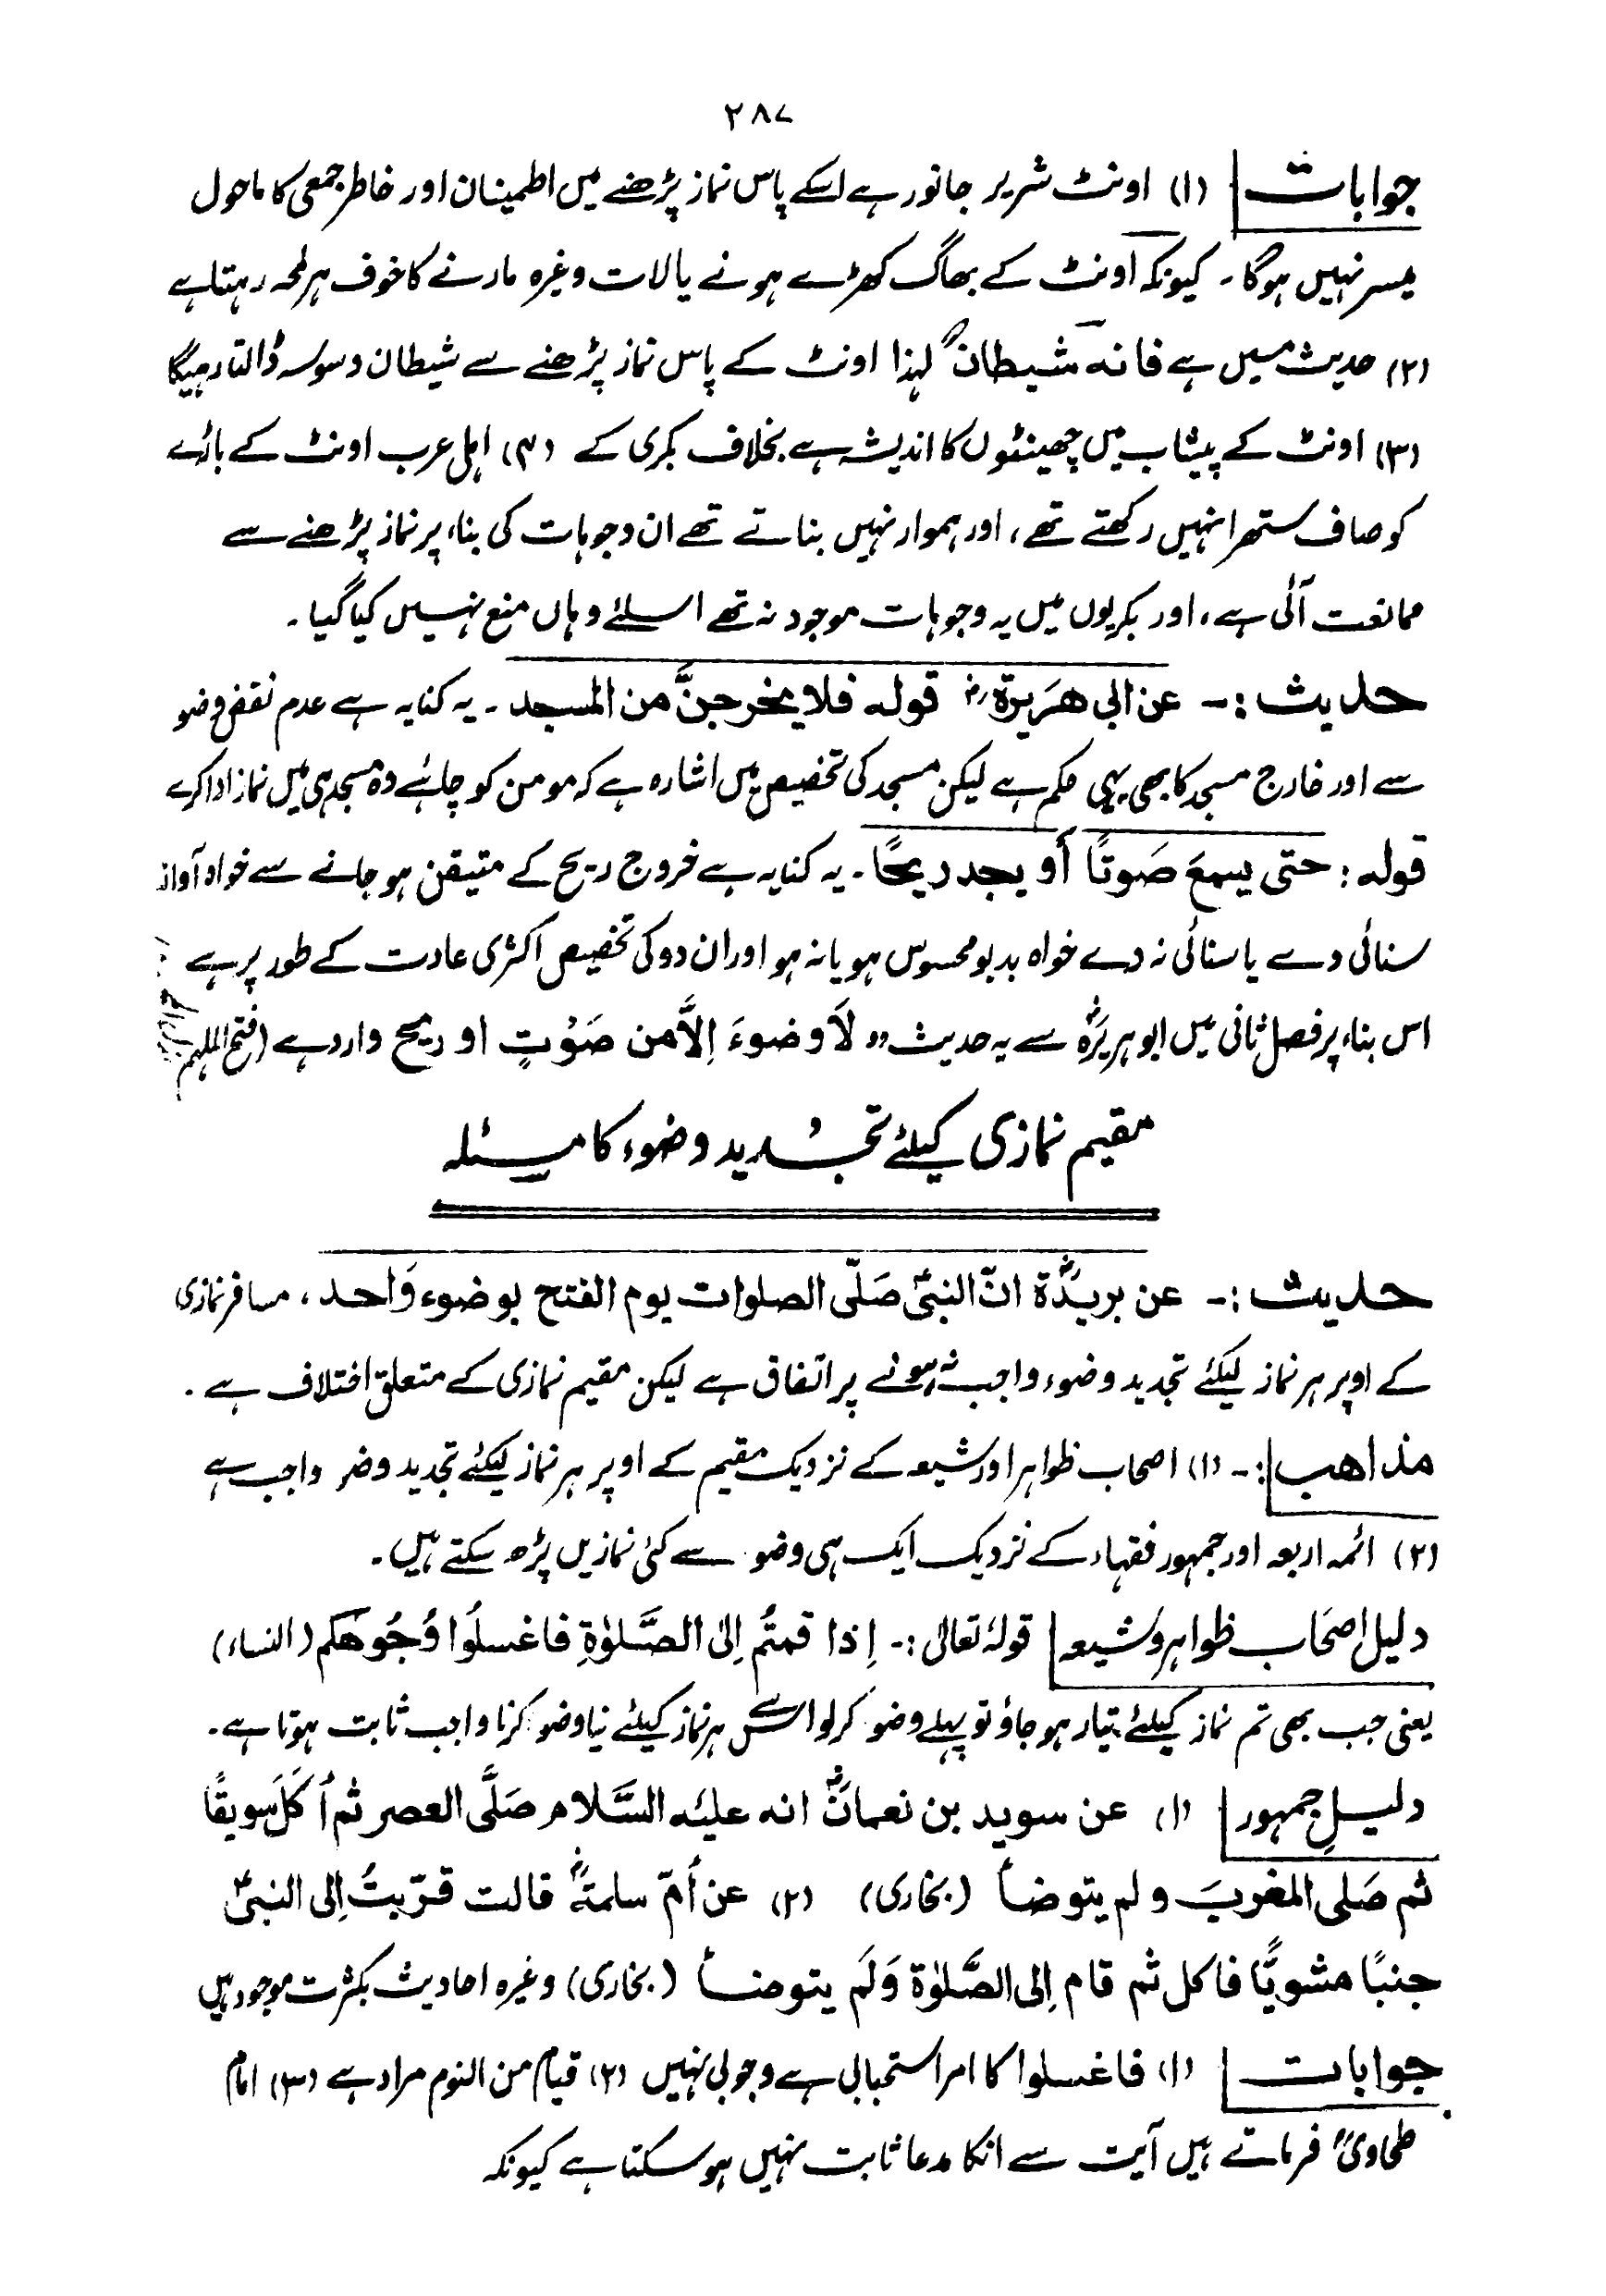 ۲۸۷
جوابات (۱) اونٹ شریر جانور ہے اسکے پاس نماز پڑھنے میں اطمینان اور خاطر جمعی کا ماحول
میسر نہیں ہوگا۔ کیونکہ اونٹ کے بھاگ کھڑے ہونے یا لات وغیرہ مارنے کا خوف ہر لمحہ رہتا ہے
(۲) حدیث میں ہے فانہ شیطان لہذا اونٹ کے پاس نماز پڑھنے سے شیطان وسوسہ ڈالتا رہیگا
(۳) اونٹ کے پیشاب میں چھینٹوں کا اندیشہ ہے بخلاف بکری کے (۴) اہل عرب اونٹ کے باڑے
کو صاف ستھرا نہیں رکھتے تھے، اور ہموار نہیں بناتے تھے ان وجوہات کی بناء پر نماز پڑھنے سے
ممانعت آئی ہے، اور بکریوں میں یہ وجوہات موجود نہ تھے اسلئے وہاں منع نہیں کیا گیا۔
حدیث :۔ عن ابی ھَریرۃ رض قولہ فلا یخرجنَّ من المسجد۔ یہ کنایہ ہے عدم نقض وضو
سے اور خارج مسجد کا بھی یہی حکم ہے لیکن مسجد کی تخصیص میں اشارہ ہے کہ مومن کو چاہئے وہ مسجد ہی میں نماز ادا کرے
قولہ : حتی یسمعَ صَوتًا أو یجد ریحًا۔ یہ کنایہ ہے خروج ریح کے متیقن ہو جانے سے خواہ آواز
سنائی دے یا سنائی نہ دے خواہ بدبو محسوس ہو یا نہ ہو اور ان دو کی تخصیص اکثری عادت کے طور پر ہے
اس بناء پر فصل ثانی میں ابو ہریرہؓ سے یہ حدیث ،، لاَ وضوءَ اِلاَّ من صَوْتٍ او ریح وارد ہے (فتح الملہم
مقیم نمازی کیلئے تجدید وضوء کا مسئلہ
حدیث :۔ عن بریدۃؓ انّ النبیؐ صَلّی الصلوات یوم الفتح بوضوء وَاحد، مسافر نمازی
کے اوپر ہر نماز کیلئے تجدید وضوء واجب نہ ہونے پر اتفاق ہے لیکن مقیم نمازی کے متعلق اختلاف ہے۔
مذاھب :۔ (۱) اصحاب ظواہر اور شیعہ کے نزدیک مقیم کے اوپر ہر نماز کیلئے تجدید وضو واجب ہے
(۲) ائمہ اربعہ اور جمہور فقہاء کے نزدیک ایک ہی وضو سے کئی نمازیں پڑھ سکتے ہیں۔
دلیل اصحَاب ظواہر و شیعہ قولہٗ تعالیٰ :۔ اِذا قمتُم اِلیٰ الصَّلوٰۃِ فاغسلُوا وُجُوھَکم (النساء)
یعنی جب بھی تم نماز کیلئے تیار ہو جاؤ تو پہلے وضو کرلو اس سے ہر نماز کیلئے نیا وضو کرنا واجب ثابت ہوتا ہے۔
دلیلِ جمہور (۱) عن سوید بن نعمانؓ انہ علیْہ السَّلام صَلَّی العصر ثم اَکَلَ سویقًا
ثم صَلی المغربَ ولم یتوضأ (بخاری) (۲) عن أمّ سلمۃؓ قالت قرّبتُ اِلی النبیؐ
جنبًا مشویًّا فاکل ثم قام اِلی الصَّلوٰۃ وَلَم یتوضأ (بخاری) وغیرہ احادیث بکثرت موجود ہیں
جوابات (۱) فاغسلوا کا امر استحبابی ہے وجوبی نہیں (۲) قیام من النوم مراد ہے (۳) امام
طحاویؒ فرماتے ہیں آیت سے انکا مدعا ثابت نہیں ہو سکتا ہے کیونکہ